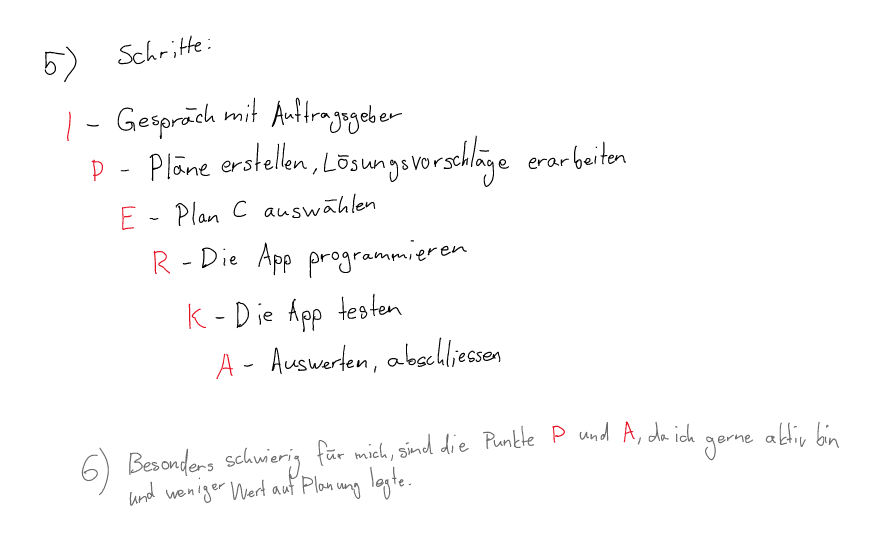 5) Schritte:
I - Gespräch mit Auftragsgeber
P - Pläne erstellen, Lösungsvorschläge erarbeiten
E - Plan C auswählen
R - Die App programmieren
K - Die App testen
A - Auswerten, abschliessen
6) Besonders schwierig für mich, sind die Punkte P und A, da ich gerne aktiv bin
und weniger Wert auf Planung legte.